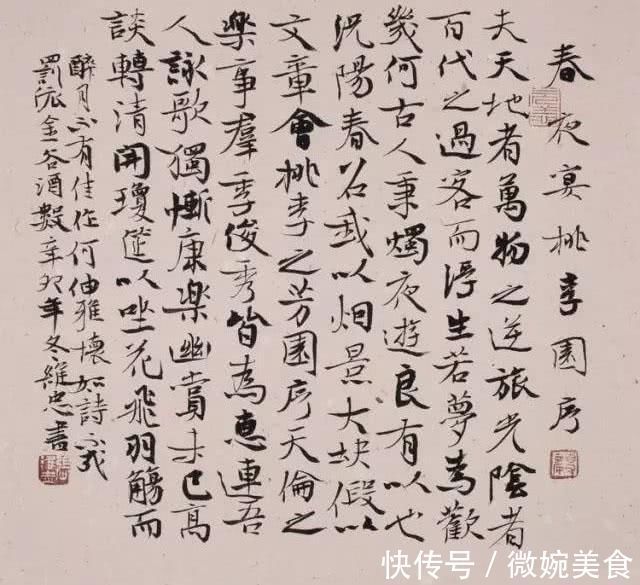 春夜宴桃李園序
夫天地者萬物之逆旅光陰者
百代之過客而浮生若夢為歡
幾何古人秉燭夜遊良有以也
況陽春召我以烟景大块假以
文章會桃李之芳園序天倫之
樂事羣季俊秀皆為惠連吾
人詠歌獨慚康樂幽賞未已高
談轉清開瓊筵以坐花飛羽觴而
醉月不有佳作何伸雅懷如詩不成
罰依金谷酒數辛卯年冬維忠書
快传号／微婉美食